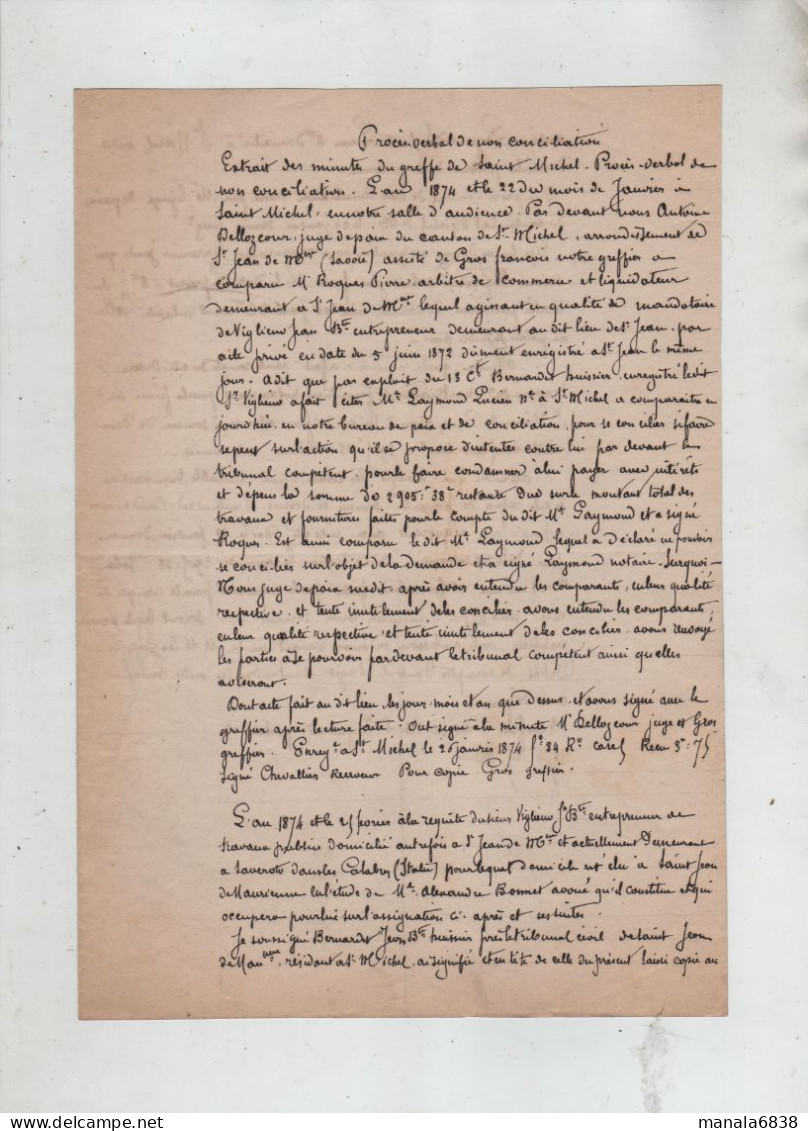 Procès verbal de non conciliation
Extrait des minutes du greffe de Saint Michel. Procès-verbal de
non conciliation. L'an 1874 et le 22 du mois de Janvier à
Saint Michel, en notre salle d'audience. Par devant nous Antoine
Dellozcour, juge de paix du canton de St. Michel, arrondissement de
St Jean de Mne (Savoie) assisté de Gros francois notre greffier a
comparu Mr Roques Pierre arbitre de commerce et liquidateur
demeurant à St Jean de Mne lequel agissant en qualité de mandataire
de Viglieno Jean Bte entrepreneur demeurant au dit lieu de St. Jean, par
acte privé en date du 5 juin 1872 dûment enregistré à St. Jean le même
jour. a dit que par exploit du 13 Ct Bernardet huissier, enregistré le dit
Sr. Viglieno a fait citer Me. Laymond Lucien Nre à St. Michel a comparaitre
jourd'hui, en notre bureau de paix et de conciliation, pour se concilier si faire
se peut sur l'action qu'il se propose d'intenter contre lui par devant le
tribunal compétent, pour le faire condamner à lui payer avec intérêts
et dépens la somme de 2905f 38c restante due sur le montant total des
travaux et fournitures faites pour le compte du dit Me. Laymond et a signé
Roques. Est aussi comparu le dit Me. Laymond lequel a déclaré ne pouvoir
se concilier sur l'objet de la demande et a signé Laymond notaire. Surquoi
Nous juge de paix susdit, après avoir entendu les comparants, en leur qualité
respective, et tenté inutilement de les concilier, avons entendu les comparants,
en leur qualité respective, et tenté inutilement de les concilier, avons renvoyé
les parties à se pourvoir par devant le tribunal compétent ainsi qu'elles
aviseront.
Dont acte fait au dit lieu, les jour, mois et an que dessus, et avons signé avec le
greffier après lecture faite. Ont signé à la minute Mr Dellozcour juge et Gros
greffier. Enregé à St. Michel le 26 janvier 1874 fo 34 Ro case Reçu 3f 75
signé Chevallier Receveur Pour copie Gros greffier.
L'an 1874 et le 25 fevrier à la requête du sieur Viglieno Jn Bte entrepreneur de
travaux publics domicilié autrefois à St Jean de Mne et actuellement demeurant
à Saveroto dans les Calabres (Italie) pour lequel domicile est élu à Saint Jean
de Maurienne en l'étude de Me. Alexandre Bonnet avoué qu'il constitue et qui
occupera pour lui sur l'assignation ci-après et ses suites.
Je soussigné Bernardet Jean Bte huissier près le tribunal civil de Saint Jean
de Mauenne, résidant à St. Michel, ai signifié et en tête de celle du présent laissé copie au
manala6838